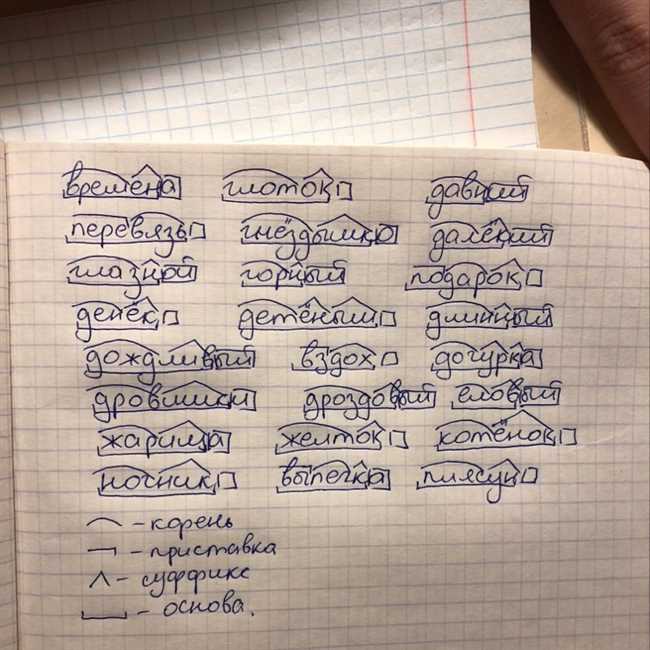 времена глоток давний
перевязь гнёздышко далёкий
глазной горный подарок
денёк детёныш длинный
дождливый вздох дочурка
дровишки дроздовый еловый
жарища желток котёнок
ночник выпечка плясун
- корень
- приставка
- суффикс
- основа.